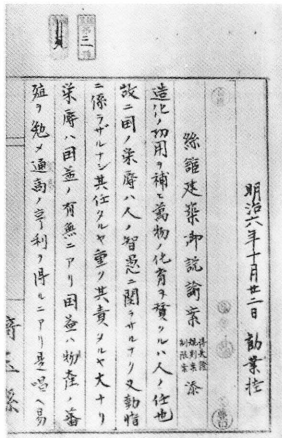 明治六年十月廿二日 勧業掛
絲舘建築御説諭案 添
造化ノ功用ヲ補ヒ萬物ノ化育ヲ賛クルハ人ノ任也
故ニ国ノ栄辱ハ人ノ智愚ニ関ラサルナク又勤惰
ニ係ラザルナシ其任タルヤ重ク其責タルヤ大ナリ
栄辱ハ国益ノ有無ニアリ国益ハ物産ノ蕃
殖ヲ勉メ通商ノ亨利ヲ得ルニアリ是